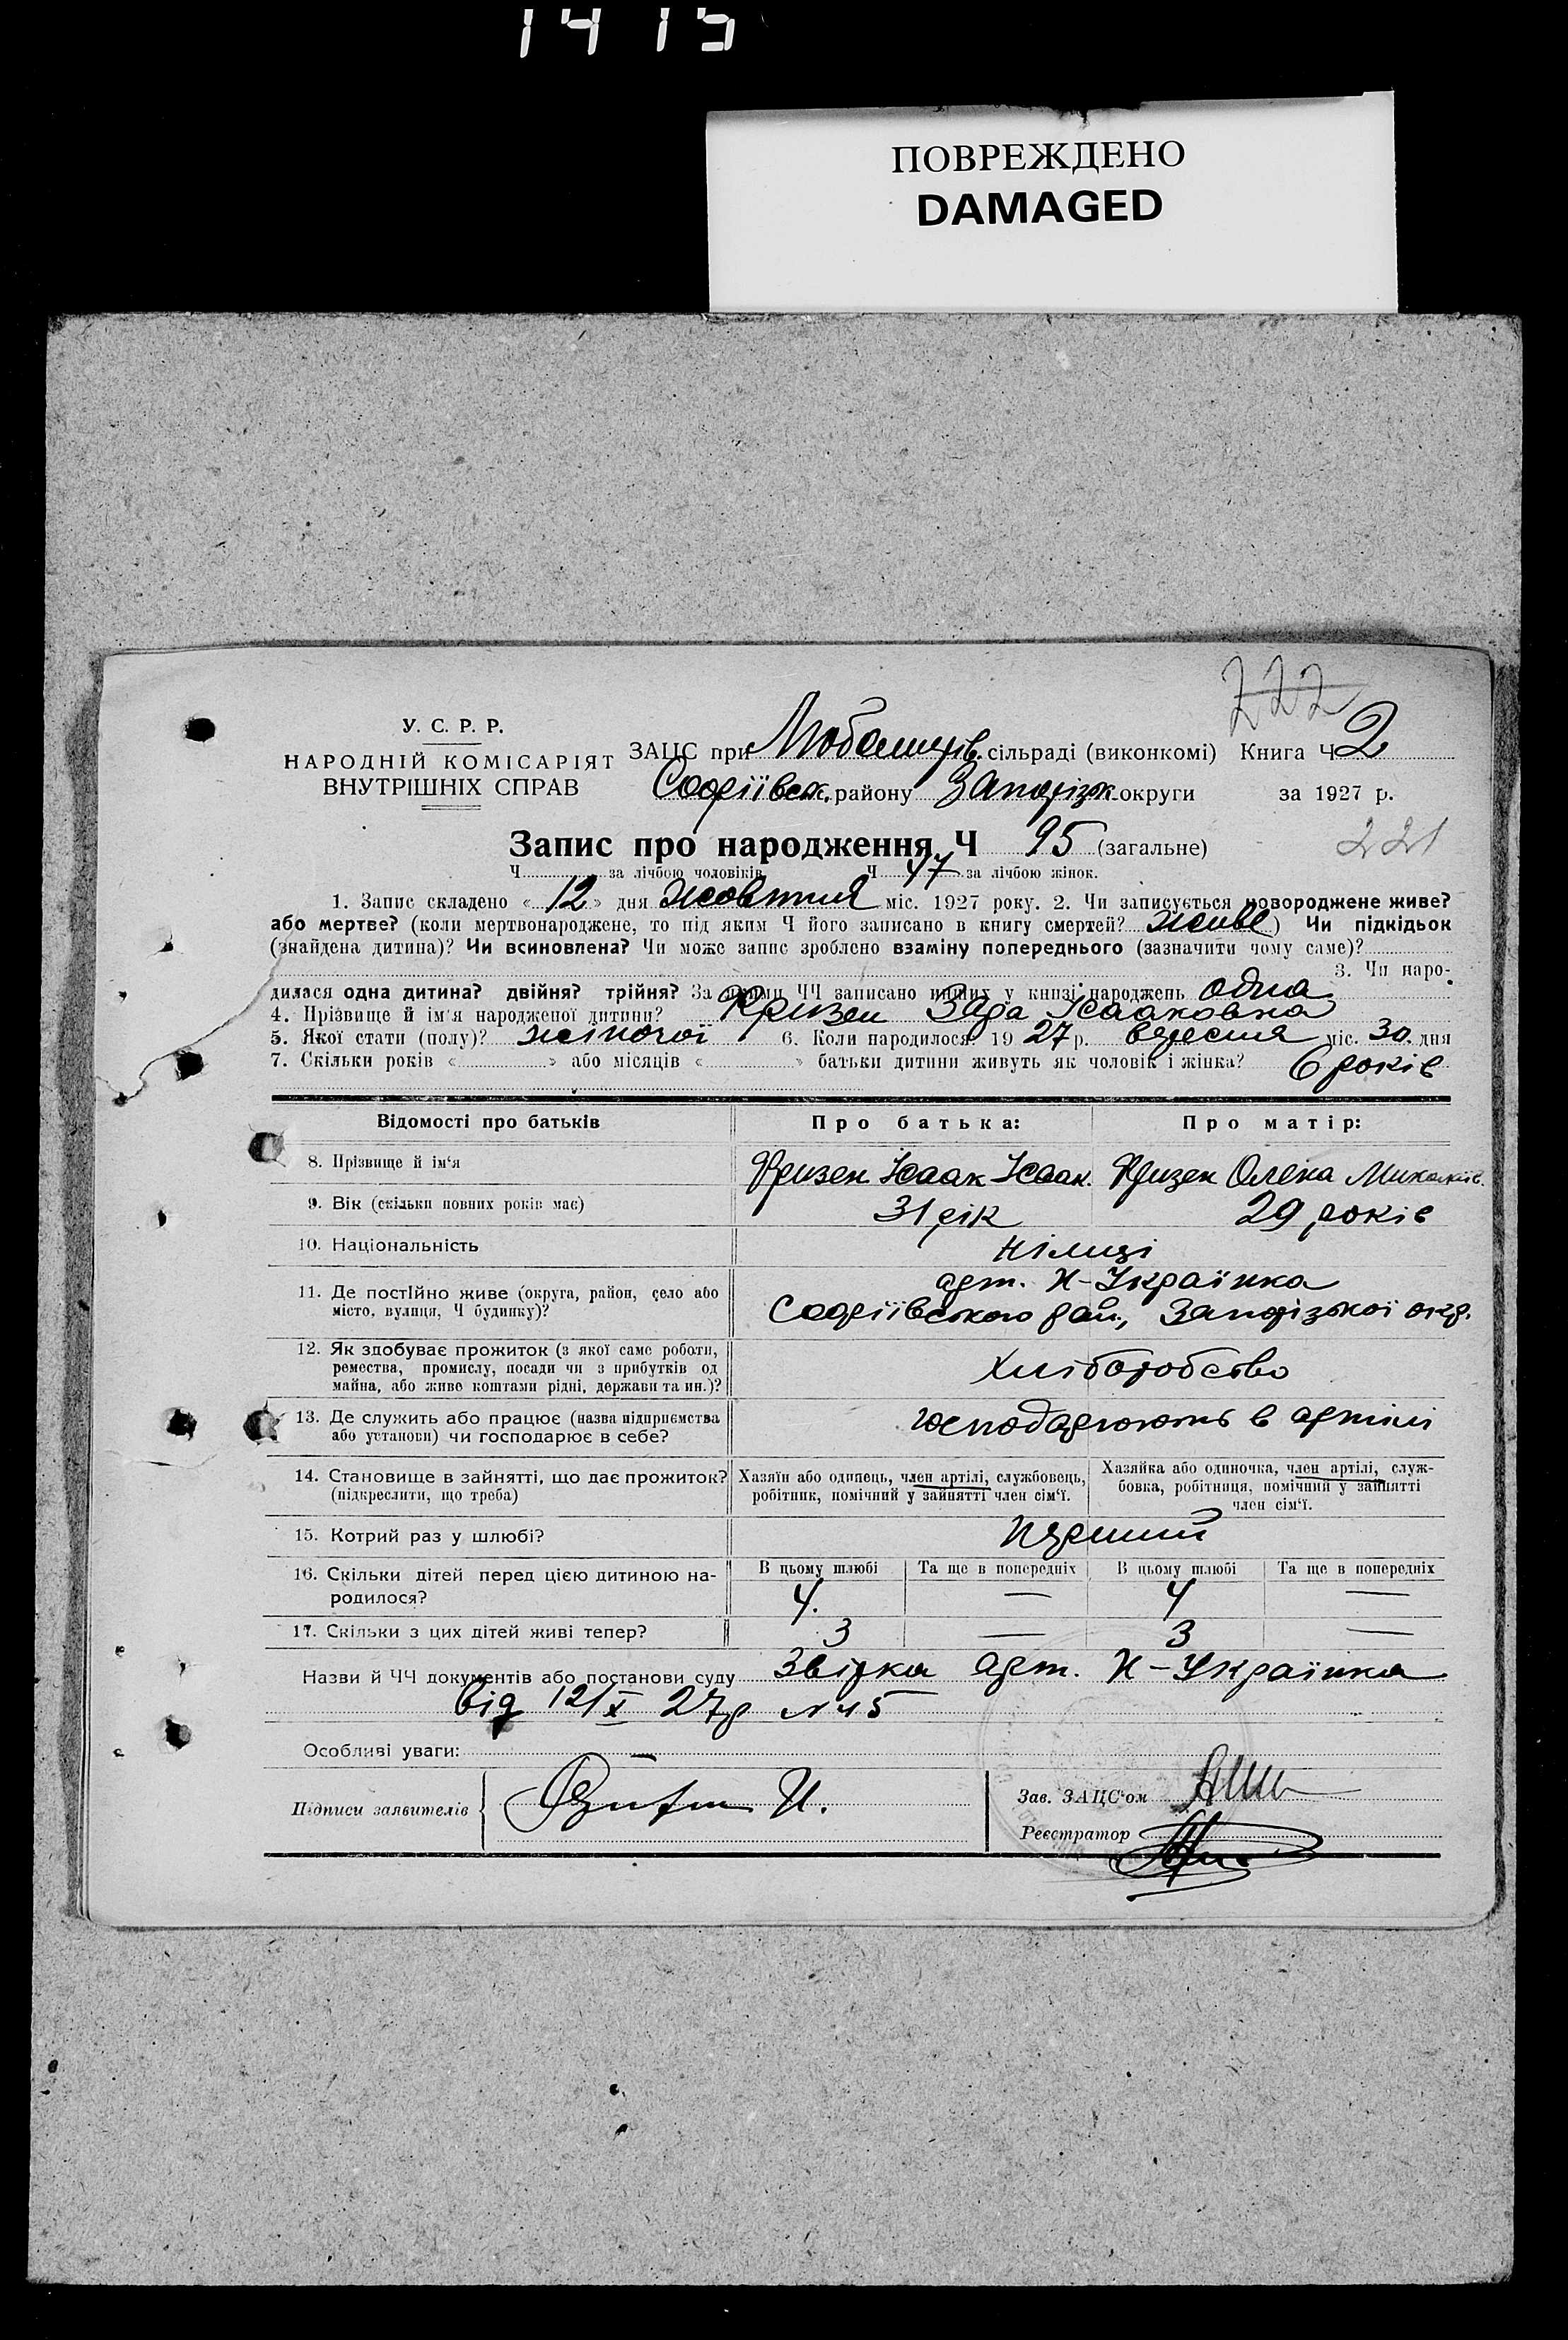 1415
ПОВРЕЖДЕНО
DAMAGED
222
У. С. Р. Р.
НАРОДНІЙ КОМІСАРІЯТ
ВНУТРІШНІХ СПРАВ
ЗАЦС при Любашів. сільраді (виконкомі) Книга Ч 2
Софіївськ. району Запорізьк. округи за 1927 р.
Запис про народження Ч 95 (загальне)
221
Ч за лічбою чоловіків Ч 47 за лічбою жінок.
1. Запис складено « 12 » дня жовтня міс. 1927 року. 2. Чи записується новороджене живе?
або мертве? (коли мертвонароджене, то під яким Ч його записано в книгу смертей? живе ) Чи підкідьок
(знайдена дитина)? Чи всиновлена? Чи може запис зроблено взаміну попереднього (зазначити чому саме)?
3. Чи наро-
дилася одна дитина? двійня? трійня? За якими ЧЧ записано инших у книзі народжень одна
4. Прізвище й ім'я народженої дитини? Фризен Исааковна
5. Якої стати (полу)? жіночої 6. Коли народилося 1927 р. вересня міс. 30 дня
7. Скільки років « » або місяців « » батьки дитини живуть як чоловік і жінка? 6 років
Відомості про батьків
Про батька:
Про матір:
8. Прізвище й ім'я
Фризен Исаак Исаак.
Фризен Олена Миколаїв.
9. Вік (скільки повних років має)
31 рік
29 років
10. Національність
німці
11. Де постійно живе (округа, район, село або
місто, вулиця, Ч будинку)?
арт. Н-Українка
Софіївського рай., Запорізької окр.
12. Як здобуває прожиток (з якої саме роботи,
ремества, промислу, посади чи з прибутків од
майна, або живе коштами рідні, держави та ин.)?
Хліборобство
13. Де служить або працює (назва підприємства
або установи) чи господарює в себе?
господарюють в артілі
14. Становище в зайнятті, що дає прожиток?
(підкреслити, що треба)
Хазяїн або одинець, член артілі, службовець,
робітник, помічний у зайнятті член сім'ї.
Хазяйка або одиночка, член артілі, служ-
бовка, робітниця, помічний у зайнятті
член сім'ї.
15. Котрий раз у шлюбі?
перший
16. Скільки дітей перед цією дитиною на-
родилося?
В цьому шлюбі
Та ще в попередніх
В цьому шлюбі
Та ще в попередніх
4. — 4 —
17. Скільки з цих дітей живі тепер?
3 — 3 —
Назви й ЧЧ документів або постанови суду Звірка арт. Н-Українка
від 12/X 27р № 45
Особливі уваги: —
Підписи заявителів
Зав. ЗАЦС'ом
Реєстратор